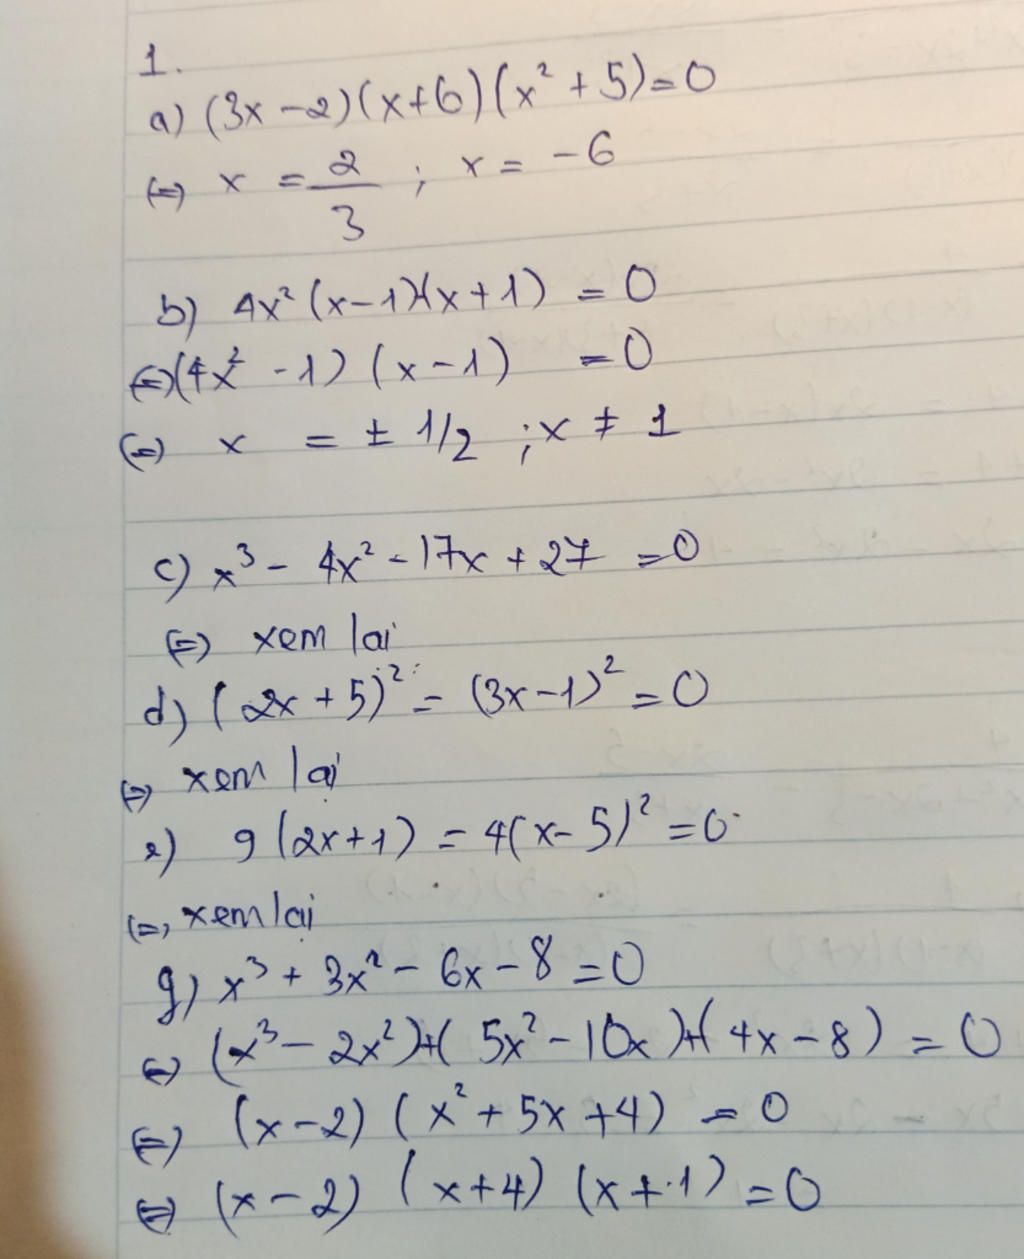 1.
a) (3x - 2)(x+6)(x² + 5) = 0
(=) x = 2/3 ; x = -6
b) 4x² (x-1)(x+1) = 0
(=) (4x² - 1) (x - 1) = 0
(=) x = ± 1/2 ; x ≠ 1
c) x³ - 4x² - 17x + 27 = 0
(=) xem lai
d) (2x + 5)² - (3x-1)² = 0
(=) xem lai
e) 9 (2x+1) = 4(x-5)² = 0
(=) xem lai
g) x³ + 3x² - 6x - 8 = 0
(=) (x³ - 2x²)+( 5x² - 10x )+( 4x - 8 ) = 0
(=) (x-2) ( x² + 5x + 4) = 0
(=) (x - 2) (x+4) (x+1) = 0